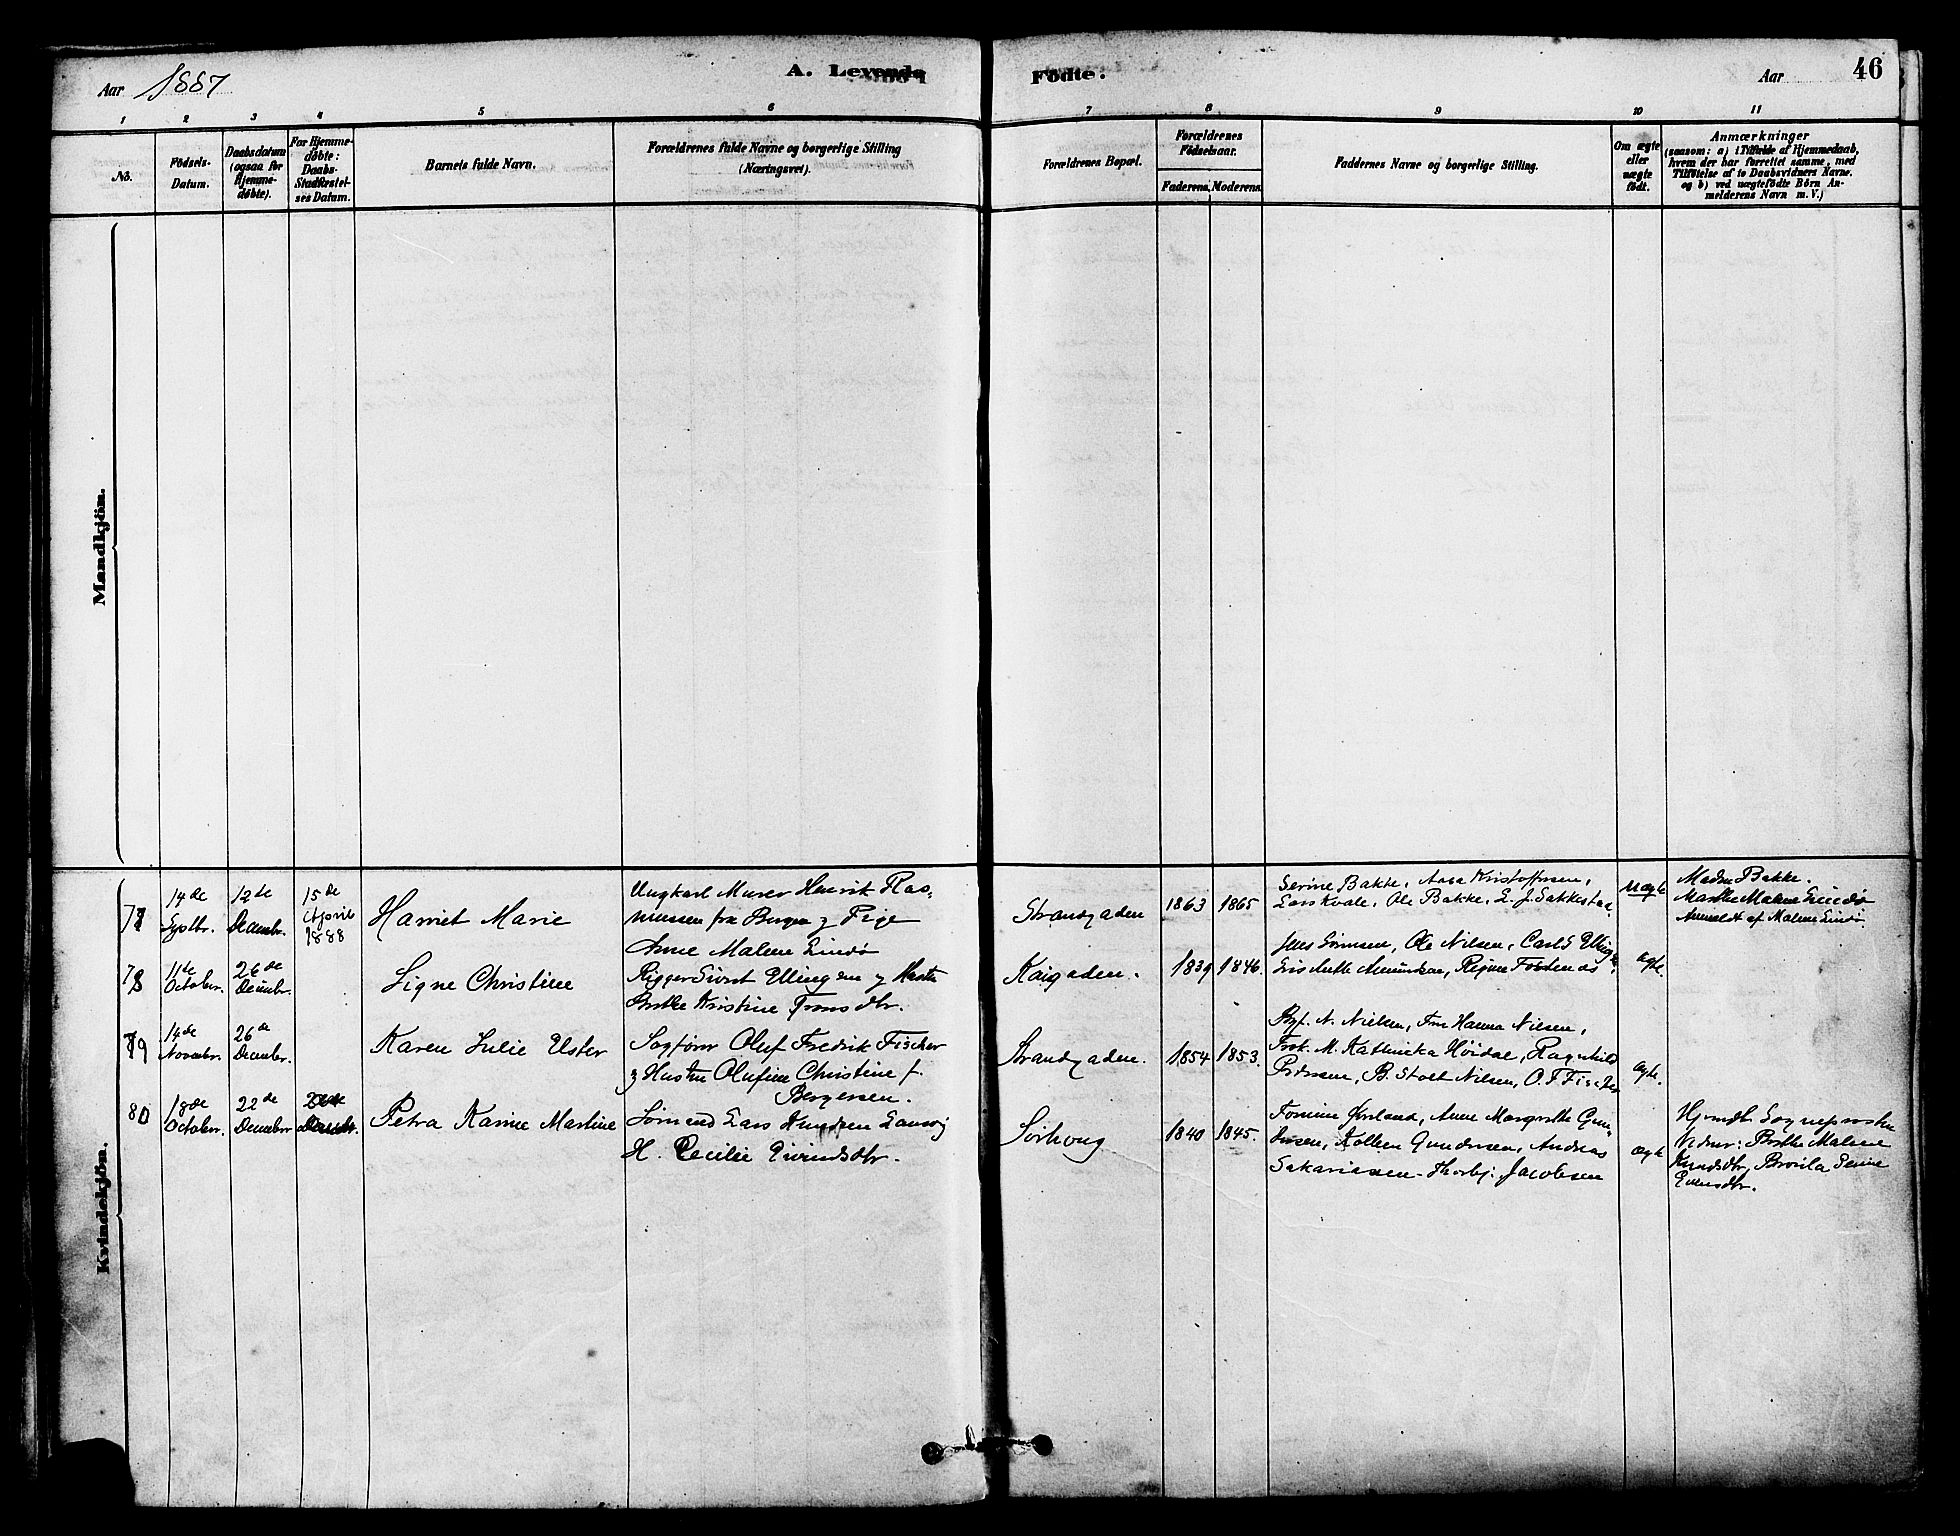 Aar 1887
A. Levende Fødte.
Aar
46
1 2 3 4 5 6 7 8 9 10 11
No.
Födsels-
Datum.
Daabsdatum
(ogsaa for
Hjemme-
døbte).
For Hjemme-
døbte:
Daabs-
Stadfæstel-
ses Datum.
Barnets fulde Navn.
Forældrenes fulde Navne og borgerlige Stilling
(Næringsvei).
Forældrenes Bopæl.
Forældrenes
Födselsaar.
Faderens. Moderens.
Faddernes Navne og borgerlige Stilling.
Om ægte
eller
uægte
födt.
Anmærkninger
(saasom: a) i Tilfælde af Hjemmedaab,
hvem der har forrettet samme, med
Tilföielse af to Daabsvidners Navne,
og b) ved uægtefödte Börn An-
melderens Navn m. V.)
Mandkjön.
Kvindekjön.
77
14de
Septbr.
12te
Decembr.
15de
April
1888
Harriet Marie
Ungkarl Murer Henrik Ras-
mussen fra Bergen og Pige
Anne Malene Lindö
Strandgaden
1863 1865
Serine Bakke, Aasa Kristoffersen,
Lars Kvale, Ole Bakke, L. J. Sakkestad
uægte
Bakke.
Marthe Malene Lindö
Anmeldt af Malene Lindö.
78
11te
October.
26de
Decembr.
Signe Christine
Rigger Sivert Ellingsen og Hustru
Berthe Kristine Tronsdtr.
Kaigaden.
1839 1846.
Jens Sörensen, Ole Nilsen, Carl Elling
Amundsen, Regine
ægte.
79
14de
Novembr.
26de
Decembr.
Karen Julie Ester
Sagförer Oluf Fredrik Fischer
og Hustru Olufine Christine f.
Bergersen.
Strandgaden.
1854 1853.
N. Nielsen, Fru Hanna Nielsen,
Frøk. M. Kathincka Höidal, Ragnhild
B. Stolt Nilsen, O. F. Fischer
ægte.
80
18de
October.
22de
Decembr
Petra Karine Martine
Sömand Lars Knudsen
H. Cecilie Eivindsdtr.
Sörhoug
1840 1845.
Tomine Anne Margrethe Gun-
dersen, Kolbein Gundersen, Andreas
Sakariassen - Thorbj: Jacobsen
ægte
Hjemdbt. Sogneprsten
Vidner: Berthe Malene
Knudsdtr,